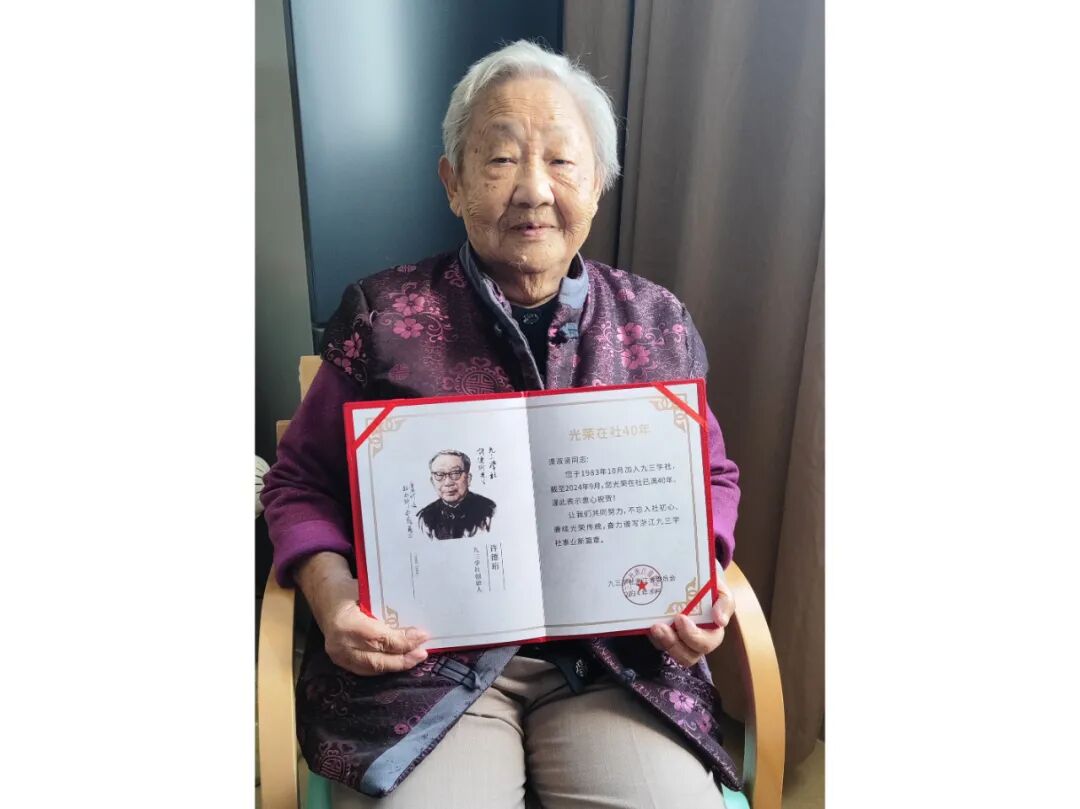 九三学社
许德珩
九三学社创始人
光荣在社40年
谭淑浚同志:
您于1983年10月加入九三学社,
截至2024年9月,您光荣在社已满40年,
谨此表示衷心祝贺!
让我们共同努力,不忘入社初心,
赓续光荣传统,奋力谱写浙江九三学
社事业新篇章。
九三学社浙江省委员会
2024年9月